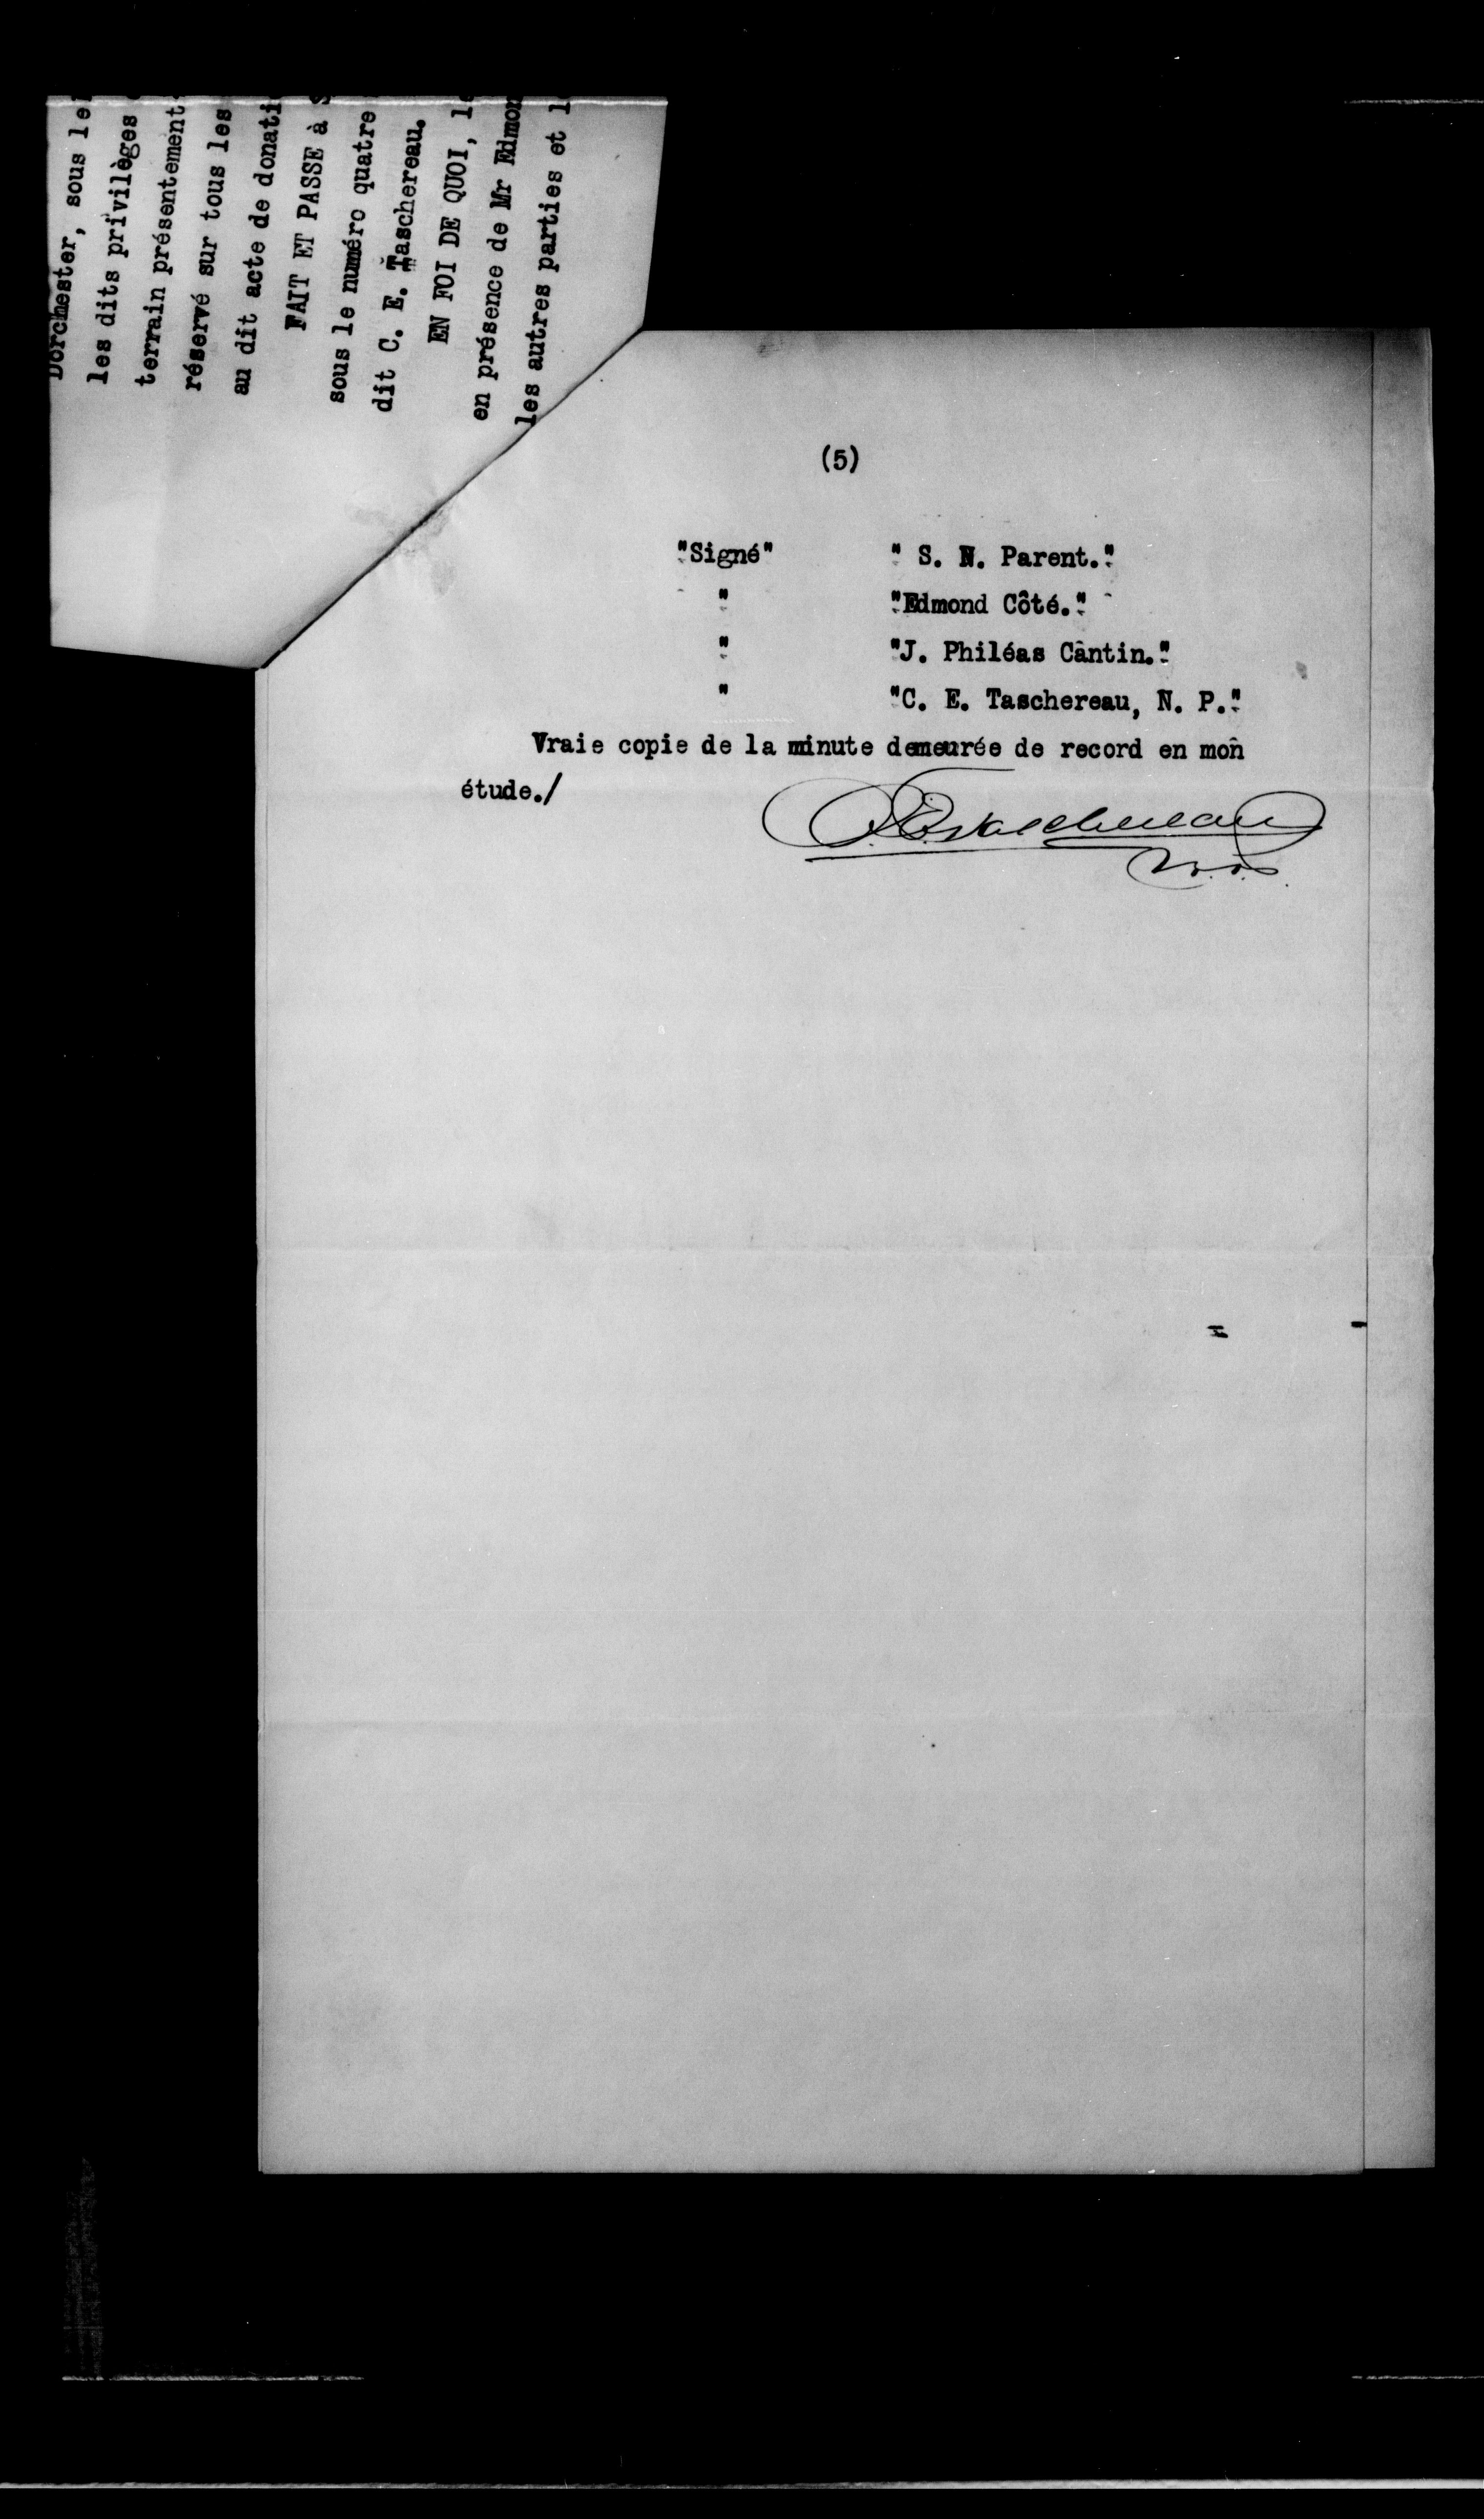 Dorchester, sous le
les dits privilèges
terrain présentement
réservé sur tous les
au dit acte de donati
FAIT ET PASSE à S
sous le numéro quatre
dit C. E. Taschereau.
EN FOI DE QUOI, le
en présence de Mr Edmon
les autres parties et l
(5)
"Signé" " S. N. Parent."
" "Edmond Côté."
" "J. Philéas Cântin."
" "C. E. Taschereau, N. P."
Vraie copie de la minute demeurée de record en mon
étude./
C. E. Taschereau
N. P.